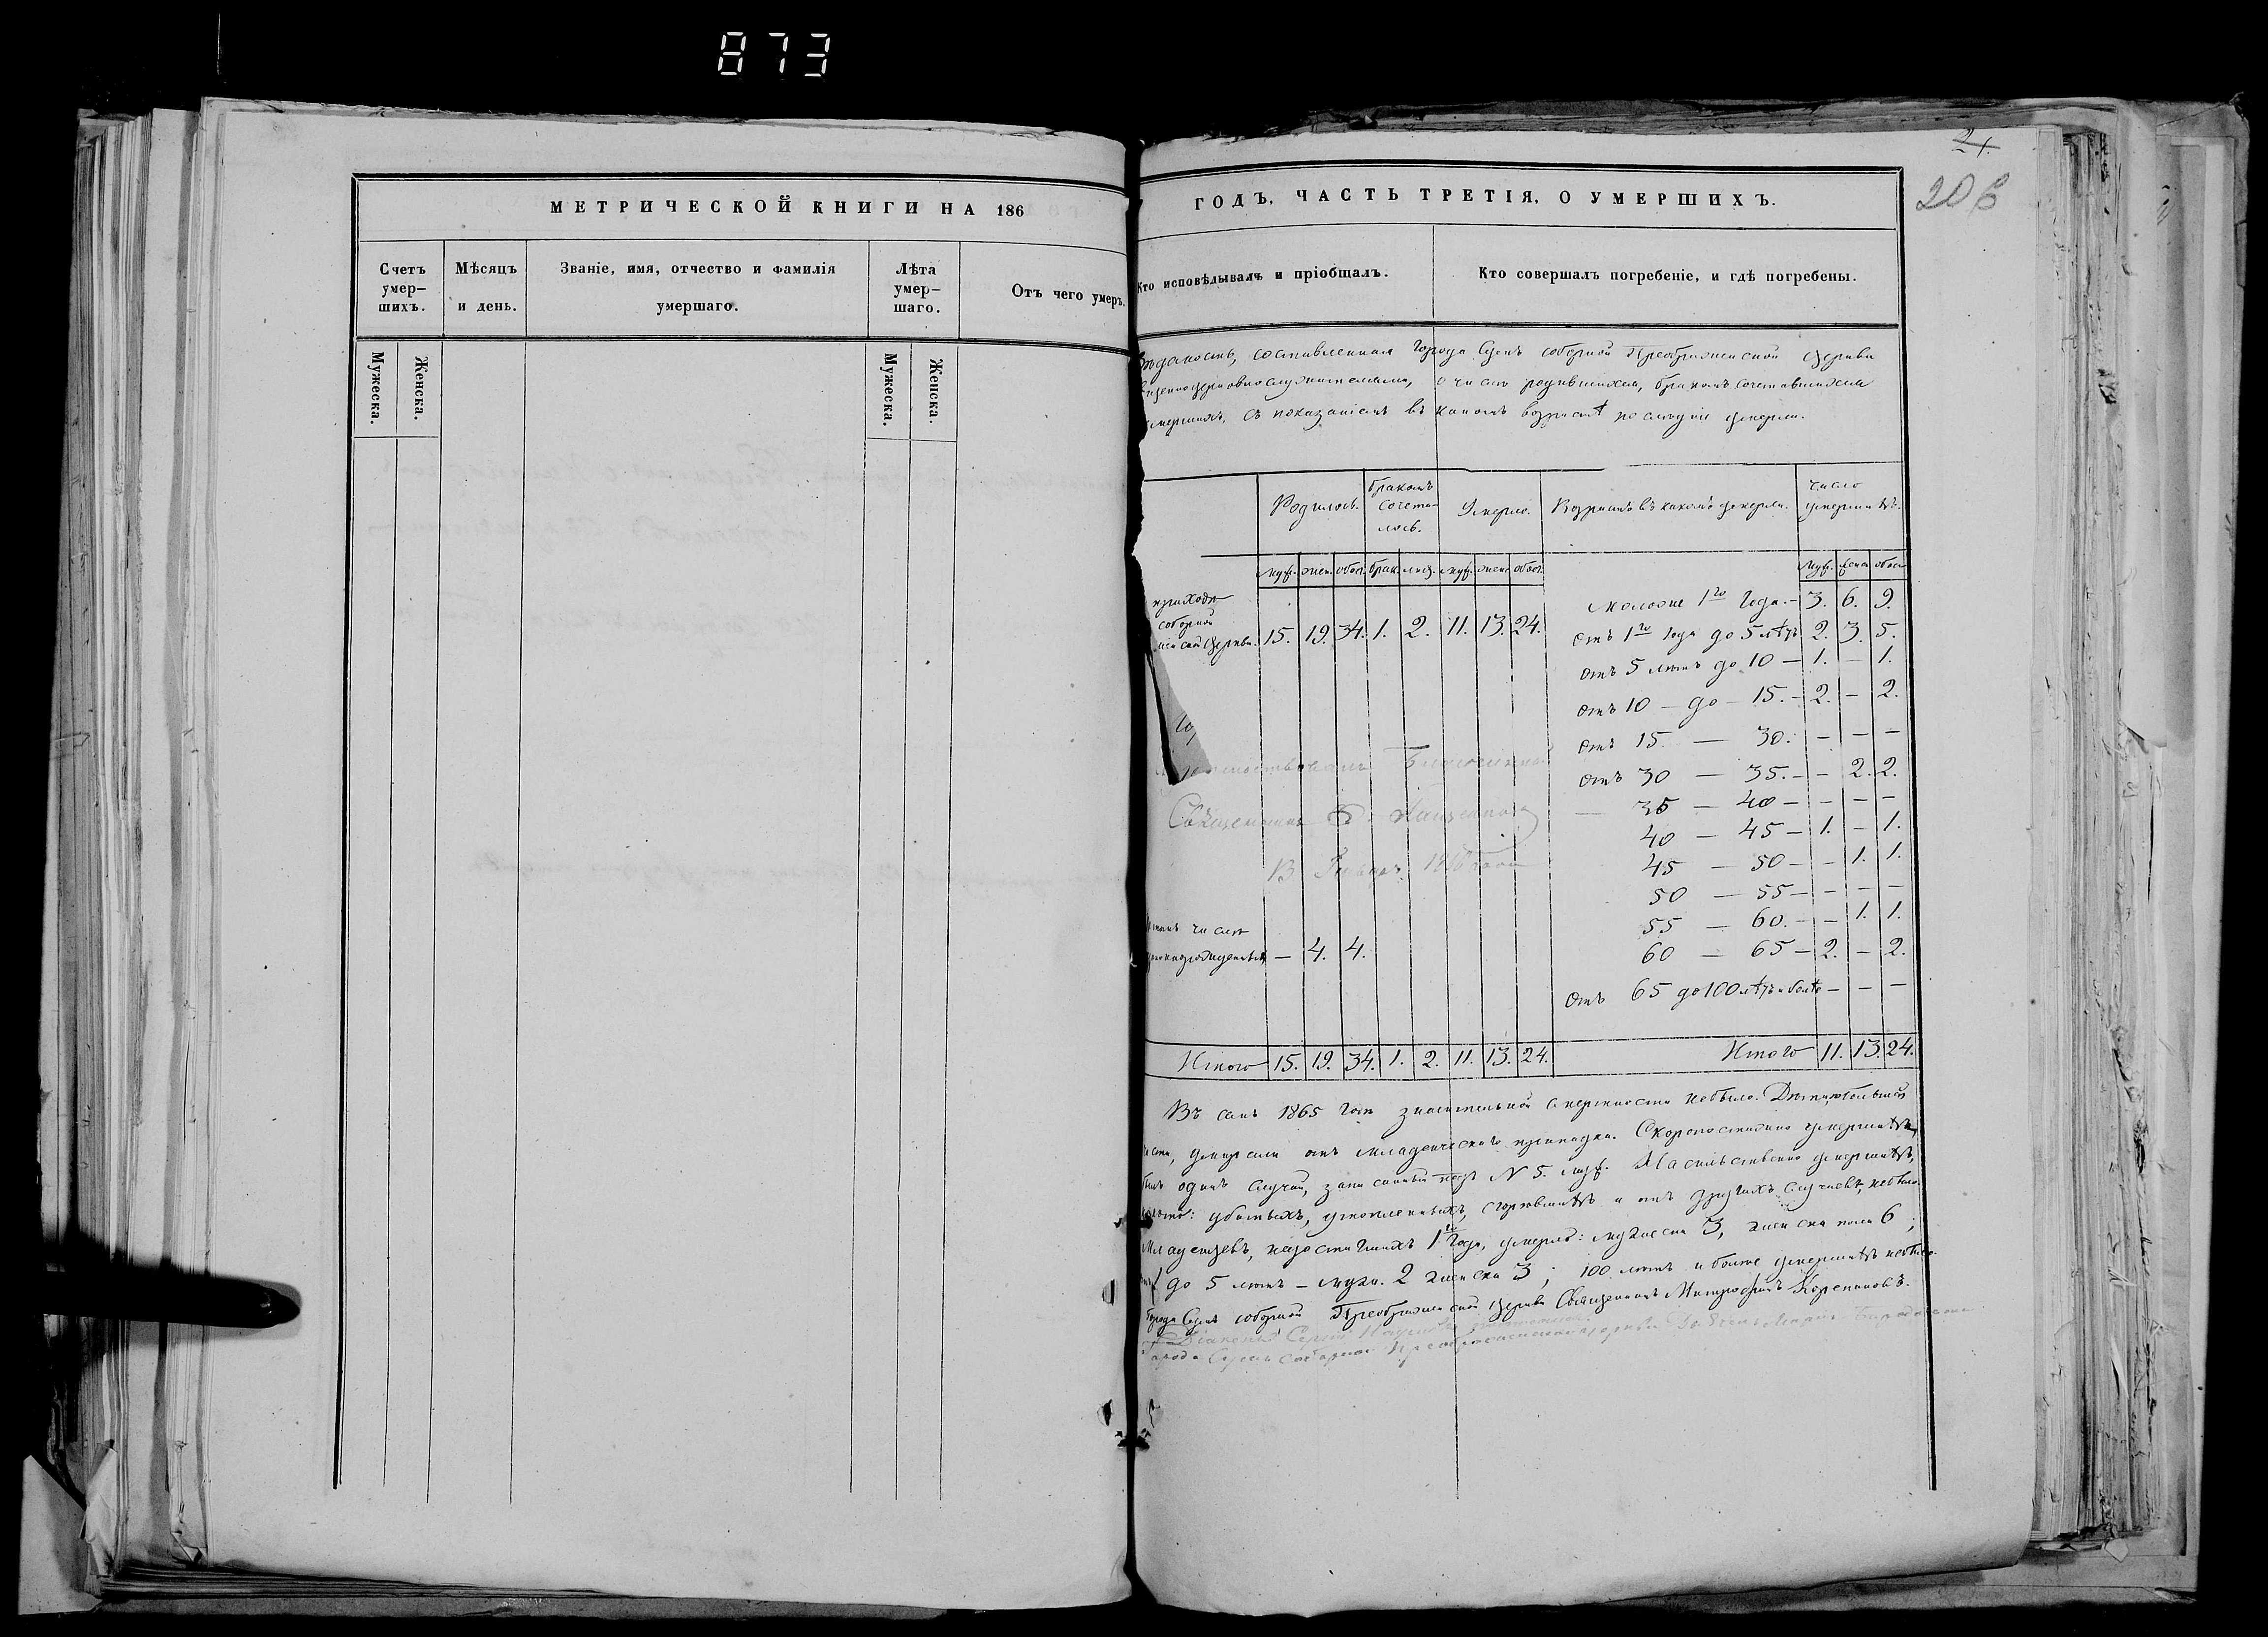 873
МЕТРИЧЕСКОЙ КНИГИ НА 186
Счетъ умер-
шихъ.
Мѣсяцъ
и день.
Званіе, имя, отчество и фамилія
умершаго.
Лѣта
умер-
шаго.
Отъ чего умеръ.
Мужеска.
Женска.
Мужеска.
Женска.
21.
206
ГОДЪ, ЧАСТЬ ТРЕТІЯ, О УМЕРШИХЪ.
Кто исповѣдывалъ и пріобщалъ.
Кто совершалъ погребеніе, и гдѣ погребены.
составленная города соборной Преображенской церкви
о числѣ родившихся, бракомъ сочетавшихся
умершихъ, съ показаніемъ въ какомъ возрастѣ послѣдніе умерли.
Родилось.
бракомъ
сочета-
лось.
Умерло.
Возрастъ въ какомъ умерли.
число
умершихъ.
муж. жен. обоег. брак. лиц. муж. жен. обоег.
муж. жен. обоег.
приходѣ
соборной
церкви. 15. 19. 34. 1. 2. 11. 13. 24.
моложе 1го года. – 3. 6. 9.
отъ 1го года до 5 лѣтъ 2. 3. 5.
отъ 5 лѣтъ до 10 – 1. – 1.
отъ 10 – до – 15. – 2. – 2.
отъ 15 – 30. – – –
отъ 30 – 35. – – 2. 2.
35 – 40 – – – –
40 – 45 – 1. – 1.
45 – 50 – – 1. 1.
50 – 55 – – – –
55 – 60. – – 1. 1.
60 – 65 – 2. – 2.
отъ 65 до 100 лѣтъ и болѣе – – –
Священникъ
числѣ
– 4. 4.
Итого 15. 19. 34. 1. 2. 11. 13. 24.
Итого 11. 13. 24.
Въ семъ 1865 годѣ значительной смертности небыло.
умирали отъ младенческаго припадка. Скоропостижно умершихъ
былъ одинъ случай, записанный подъ N 5. муж. Насильственно умершихъ,
убитыхъ, утопленныхъ, сгорѣвшихъ и отъ другихъ случаевъ, небыло.
Младенцевъ, недостигшихъ 1го года, умерло: мужеска 3, женска пола 6;
до 5 лѣтъ – мужи. 2 женска 3; 100 лѣтъ и болѣе умершихъ небыло.
Города соборной Преображенской церкви Священникъ Митрофанъ
Діаконъ Сергій
Города соборной Преображенской церкви